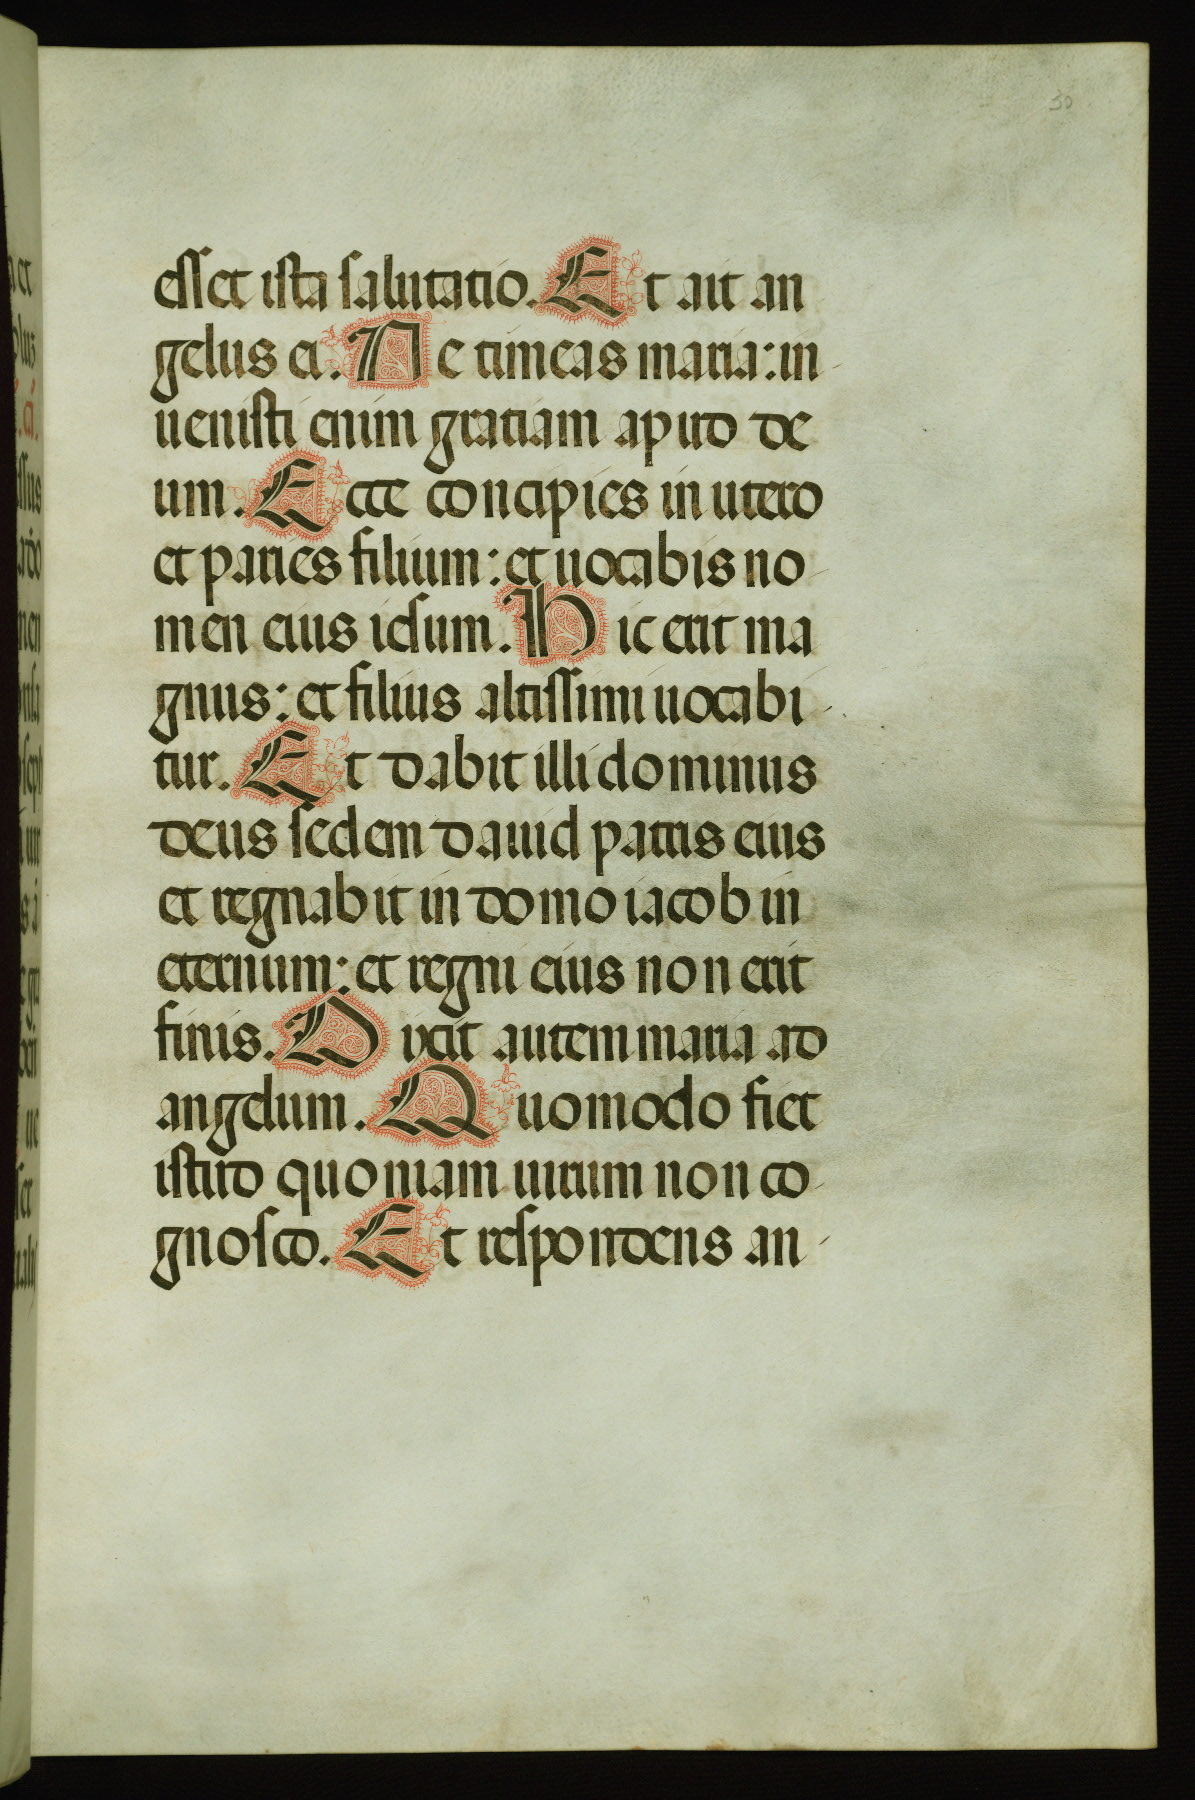 30
esset ista salutatio. Et ait an-
gelus ei. Ne timeas maria: in-
uenisti enim gratiam apud de
um. Ecce concipies in utero
et paries filium: et uocabis no-
men eius iesum. Hic erit ma
gnus: et filius altissimi uocabi-
tur. Et dabit illi dominus
deus sedem dauid patris eius
et regnabit in domo iacob in
eternum: et regni eius non erit
finis. Dixit autem maria ad
angelum. Quomodo fiet
istud quoniam uirum non co-
gnosco. Et respondens an-